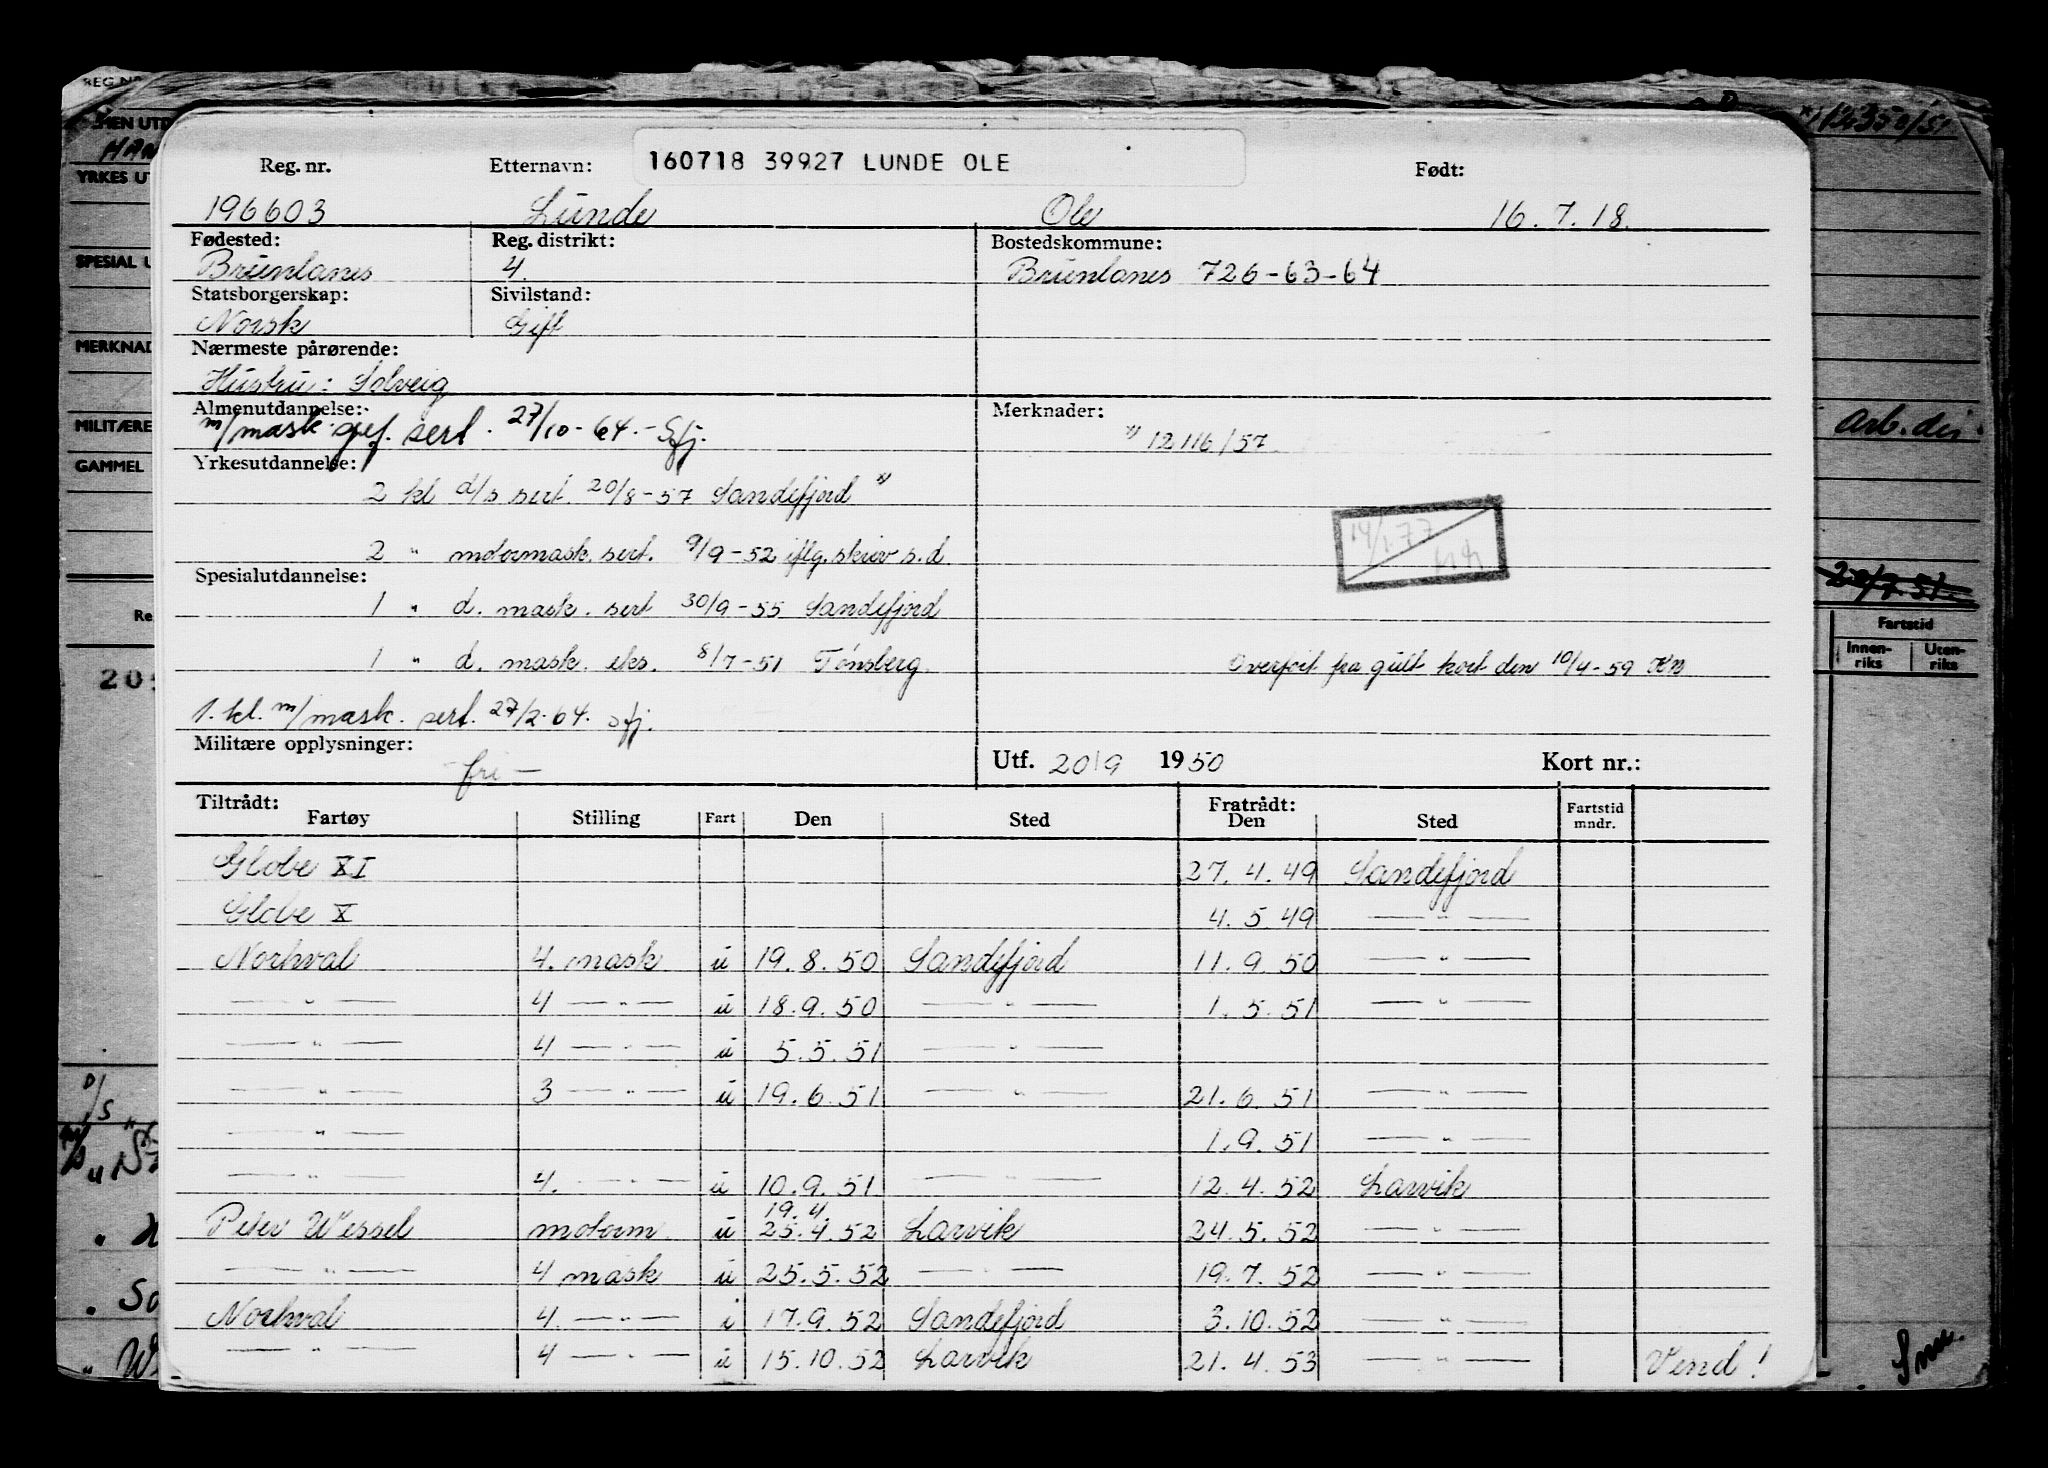 160718 39927 LUNDE OLE
Reg. nr. Etternavn: Født:
196603 Lunde Ole 16.7.18.
Fødested: Reg. distrikt: Bostedskommune:
Brunlanes 4. Brunlanes 726-63-64
Statsborgerskap: Sivilstand:
Norsk Gift
Nærmeste pårørende:
Hustru: Solveig
Almenutdannelse: Merknader:
m/mask. sert. 27/10-64.- Sfj.
x) 12116/57
Yrkesutdannelse:
2 kl d/s sert. 20/8-57 Sandefjord x)
2 " motormask. sert. 9/9-52 iflg. skriv s.d.
14/1.77
Spesialutdannelse:
1 " d. mask. sert 30/9-55 Sandefjord
1 " d. mask. eks. 8/7-51 Tønsberg. Overført fra gult kort den 10/4-59 KN
1. kl. m/mask. sert. 27/2-64. Sfj.
Militære opplysninger: Utf. 20/9 1950 Kort nr.:
- fri -
Tiltrådt: Fratrådt:
Fartøy Stilling Fart Den Sted Den Sted Fartstid mndr.
Globe XI 27.4.49 Sandefjord
Globe X 4.5.49 — " —
Norhval 4. mask u 19.8.50 Sandefjord 11.9.50 — " —
— " — 4 — " — u 18.9.50 — " — 1.5.51 — " —
— " — 4 — " — u 5.5.51 — " —
— " — 3 — " — u 19.6.51 — " — 21.6.51 — " —
— " — 1.9.51 — " —
— " — 4. — " — u 10.9.51 — " — 12.4.52 Larvik
19.4
Peter Wessel motorm. u 25.4.52 Larvik 24.5.52 — " —
— " — 4 mask u 25.5.52 — " — 19.7.52 — " —
Norhval 4. — " — i 17.9.52 Sandefjord 3.10.52 — " —
— " — 4 — " — u 15.10.52 Larvik 21.4.53 — " — Vend!
REG. NR.
YRKES UT
SPESIAL U
MERKNAD
MILITÆRE
GAMMEL
Re
205
12350/51
arb. din
20/7.51.
Fartstid
Innen-riks Uten-riks